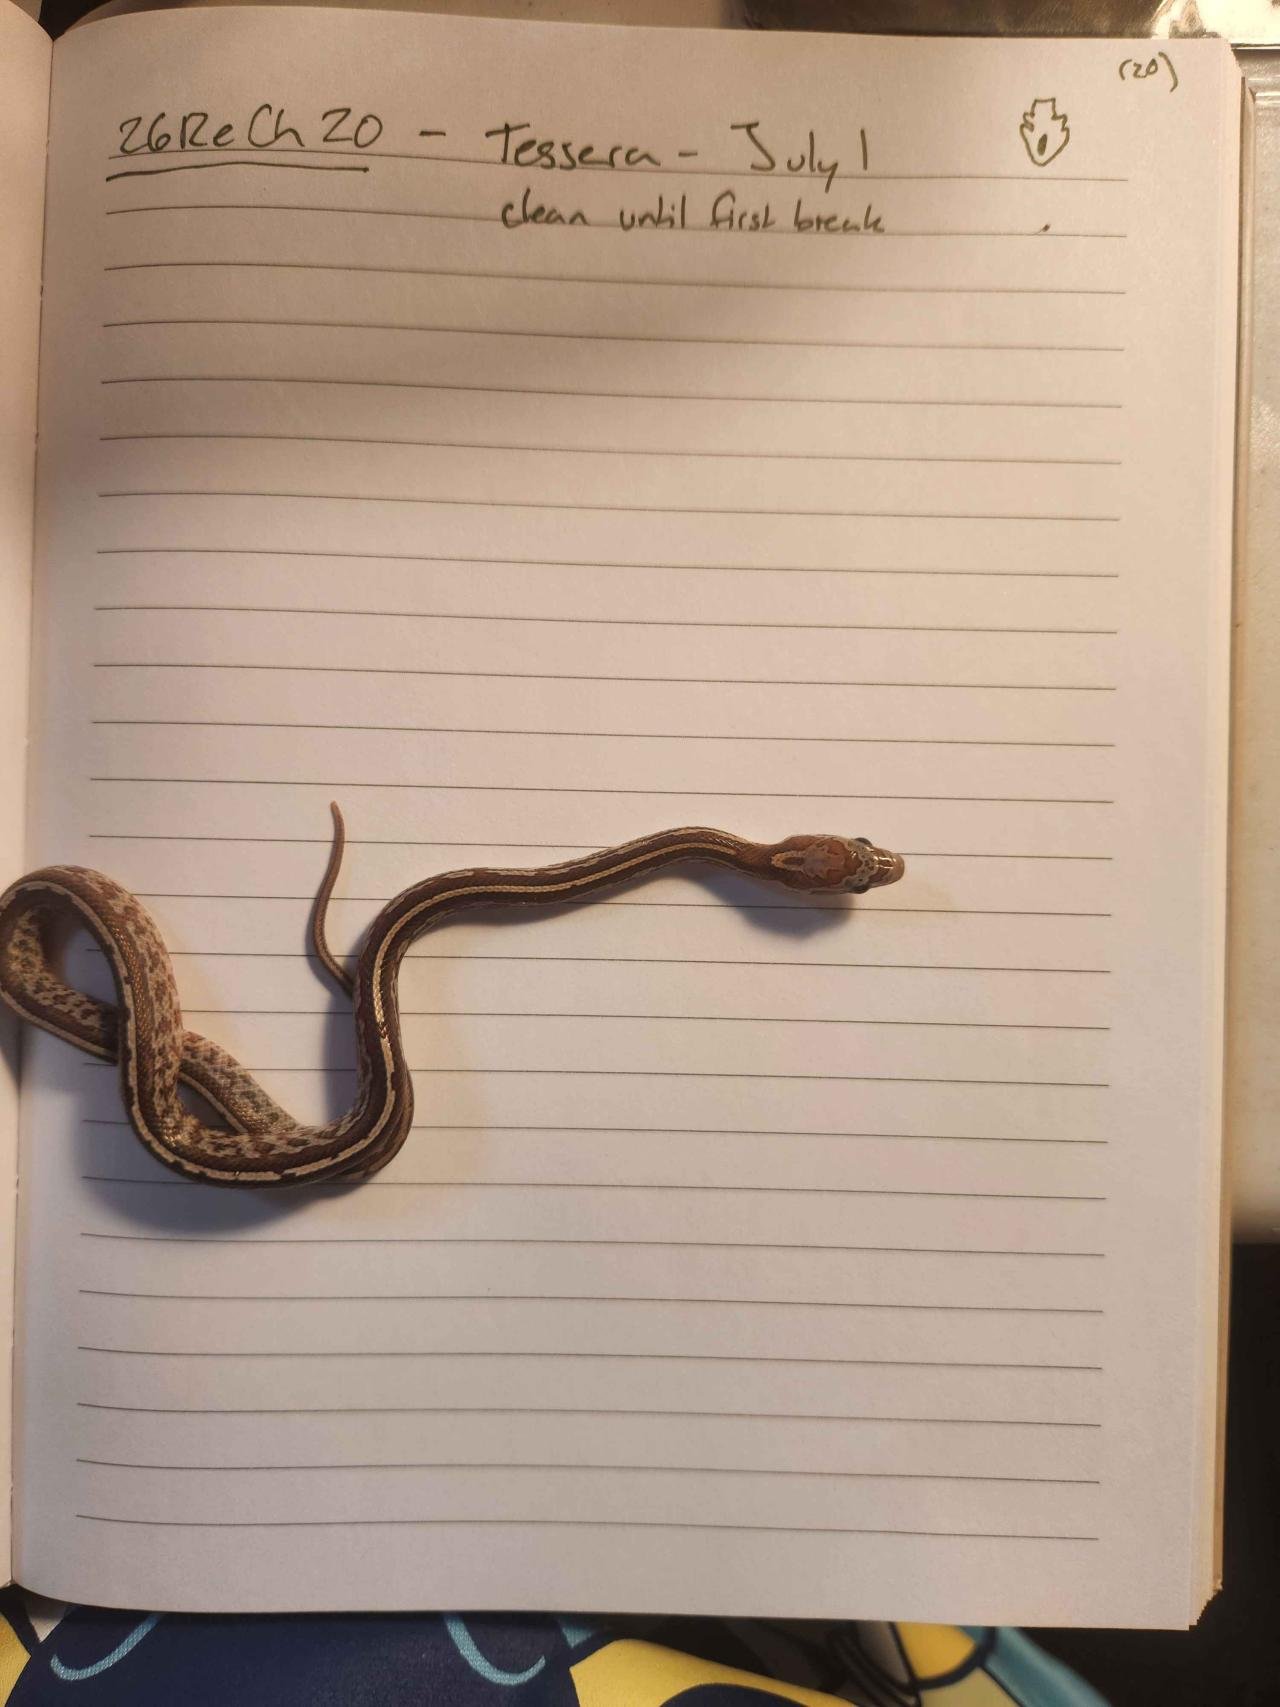 (20)
26ReCh20 - Tessera - July 1
clean until first break